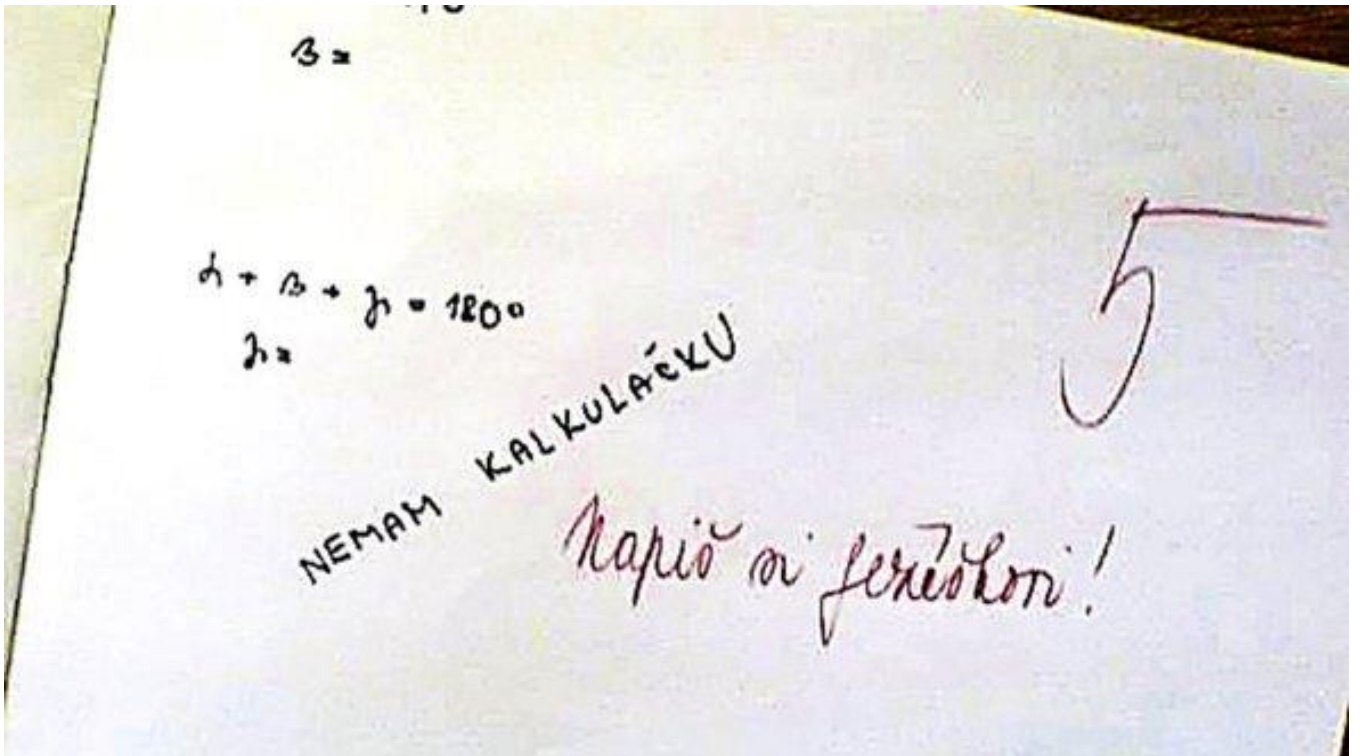 β =
α + β + γ = 180°
γ =
5
NEMAM KALKULAČKU
Napiš si Ježíškovi!